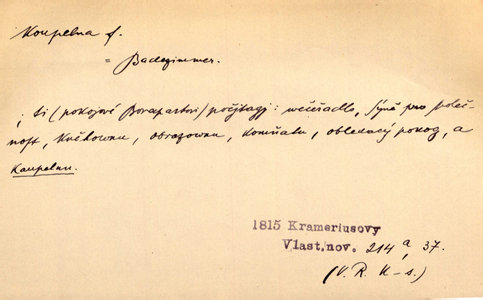 Koupelna f.
= Badezimmer.
; ti (pokojowé Bonapartovi) počjtagj: wečeřadlo, sýně pro společ-
nost, Knihownu, obrazownu, komňatu, oblekacý pokog, a
Kaupelnu.
1815 Krameriusovy
Vlast. nov. 214 a, 37.
(V. R. K-s.)